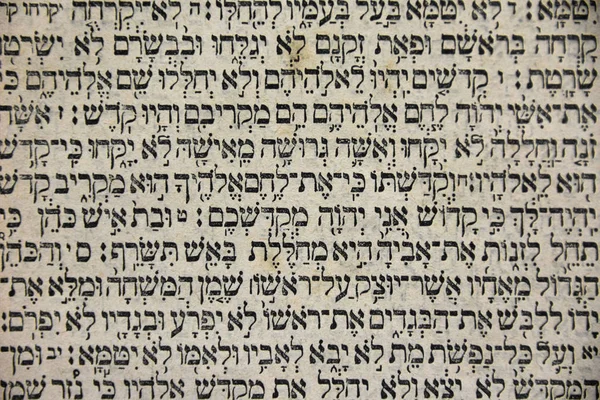 יִטַּמָּא׃ ד לֹא יִטַּמָּא בַּעַל בְּעַמָּיו לְהֵחַלּוֹ׃ ה לֹא־יִקְרְחֻה יקרחו ק
קָרְחָה בְּרֹאשָׁם וּפְאַת זְקָנָם לֹא יְגַלֵּחוּ וּבִבְשָׂרָם לֹא יִשְׂרְטוּ
שָׂרָטֶת׃ ו קְדֹשִׁים יִהְיוּ לֵאלֹהֵיהֶם וְלֹא יְחַלְּלוּ שֵׁם אֱלֹהֵיהֶם כִּי
אֶת־אִשֵּׁי יְהוָה לֶחֶם אֱלֹהֵיהֶם הֵם מַקְרִיבִם וְהָיוּ קֹדֶשׁ׃ ז אִשָּׁה
זֹנָה וַחֲלָלָה לֹא יִקָּחוּ וְאִשָּׁה גְּרוּשָׁה מֵאִישָׁהּ לֹא יִקָּחוּ כִּי־קָדֹשׁ
הוּא לֵאלֹהָיו׃ ח וְקִדַּשְׁתּוֹ כִּי־אֶת־לֶחֶם אֱלֹהֶיךָ הוּא מַקְרִיב קָדֹשׁ
יִהְיֶה־לָּךְ כִּי קָדוֹשׁ אֲנִי יְהוָה מְקַדִּשְׁכֶם׃ ט וּבַת אִישׁ כֹּהֵן כִּי
תֵחֵל לִזְנוֹת אֶת־אָבִיהָ הִיא מְחַלֶּלֶת בָּאֵשׁ תִּשָּׂרֵף׃ ס י וְהַכֹּהֵן
הַגָּדוֹל מֵאֶחָיו אֲשֶׁר־יוּצַק עַל־רֹאשׁוֹ שֶׁמֶן הַמִּשְׁחָה וּמִלֵּא אֶת־
יָדוֹ לִלְבֹּשׁ אֶת־הַבְּגָדִים אֶת־רֹאשׁוֹ לֹא יִפְרָע וּבְגָדָיו לֹא יִפְרֹם׃
יא וְעַל כָּל־נַפְשֹׁת מֵת לֹא יָבֹא לְאָבִיו וּלְאִמּוֹ לֹא יִטַּמָּא׃ יב וּמִן־
הַמִּקְדָּשׁ לֹא יֵצֵא וְלֹא יְחַלֵּל אֵת מִקְדַּשׁ אֱלֹהָיו כִּי נֵזֶר שֶׁמֶן